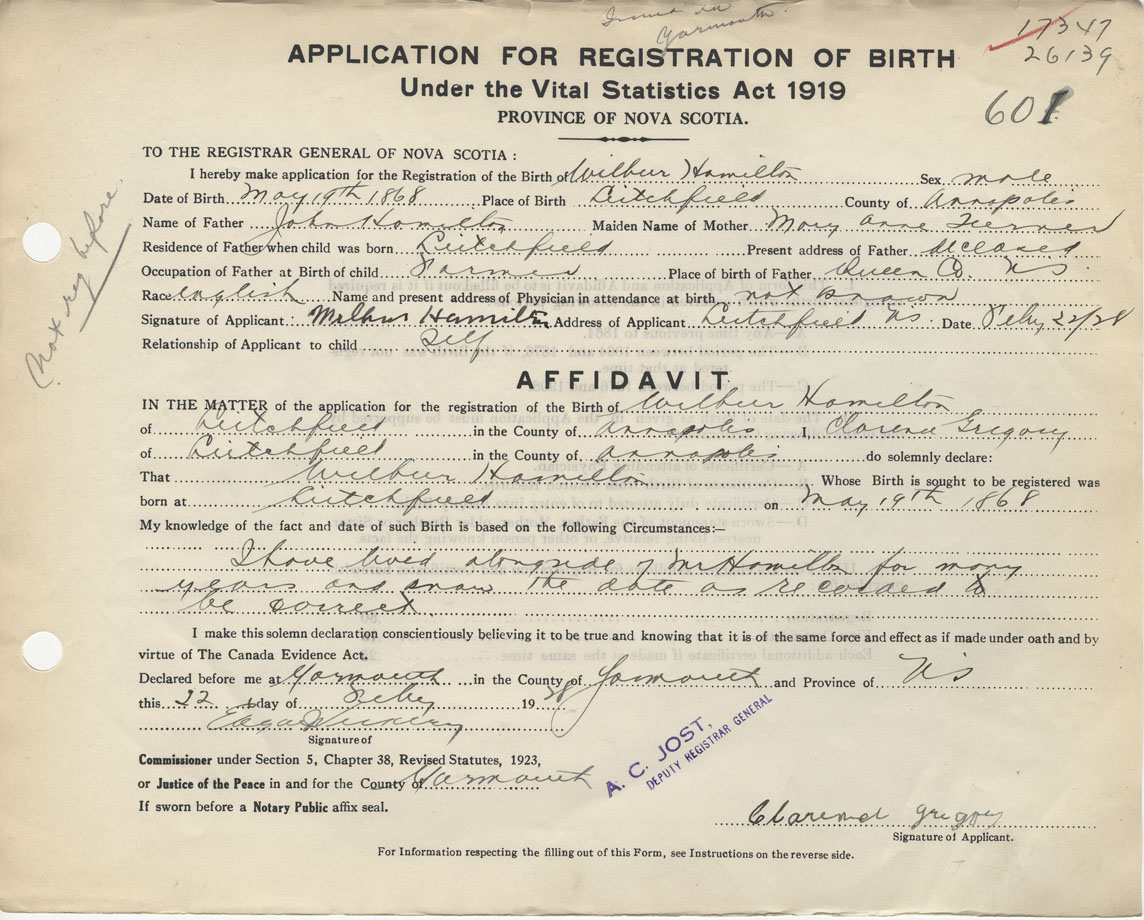 Issued in
Yarmouth.
17347
26139
601
APPLICATION FOR REGISTRATION OF BIRTH
Under the Vital Statistics Act 1919
PROVINCE OF NOVA SCOTIA.
TO THE REGISTRAR GENERAL OF NOVA SCOTIA :
I hereby make application for the Registration of the Birth of Wilbur Hamilton Sex male
Date of Birth May 19th 1868 Place of Birth Litchfield County of Annapolis
Name of Father John Hamilton Maiden Name of Mother Mary Anne
Residence of Father when child was born Litchfield Present address of Father deceased
Occupation of Father at Birth of child Farmer Place of birth of Father Queen Co. NS
Race English Name and present address of Physician in attendance at birth not known
Signature of Applicant : Wilbur Hamilton Address of Applicant Litchfield NS. Date Feby 22/28
Relationship of Applicant to child Self
Not reg before
AFFIDAVIT
IN THE MATTER of the application for the registration of the Birth of Wilbur Hamilton
of Litchfield in the County of Annapolis I, Clarence Gregory
of Litchfield in the County of Annapolis do solemnly declare:
That Wilbur Hamilton Whose Birth is sought to be registered was
born at Litchfield on May 19th 1868
My knowledge of the fact and date of such Birth is based on the following Circumstances:—
I have lived alongside of Mr Hamilton for many
years and know the date as recorded to
be correct
I make this solemn declaration conscientiously believing it to be true and knowing that it is of the same force and effect as if made under oath and by
virtue of The Canada Evidence Act.
Declared before me at Yarmouth in the County of Yarmouth and Province of NS
this 22 day of Feby 1928
Signature of
Commissioner under Section 5, Chapter 38, Revised Statutes, 1923,
or Justice of the Peace in and for the County of Yarmouth
If sworn before a Notary Public affix seal.
A. C. JOST,
DEPUTY REGISTRAR GENERAL
Clarence Gregory
Signature of Applicant.
For Information respecting the filling out of this Form, see Instructions on the reverse side.